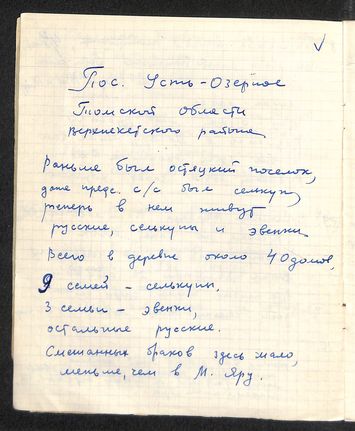 ✓
Пос. Усть-Озерное
Томской области
Верхнекетского района
Раньше был остяцкий поселок,
даже предс. с/с был селькуп,
теперь в нем живут
русские, селькупы и эвенки
Всего в деревне около 40 домов,
9 семей – селькупы,
3 семьи – эвенки,
остальные русские.
Смешанных браков здесь мало,
меньше, чем в М. Яру.